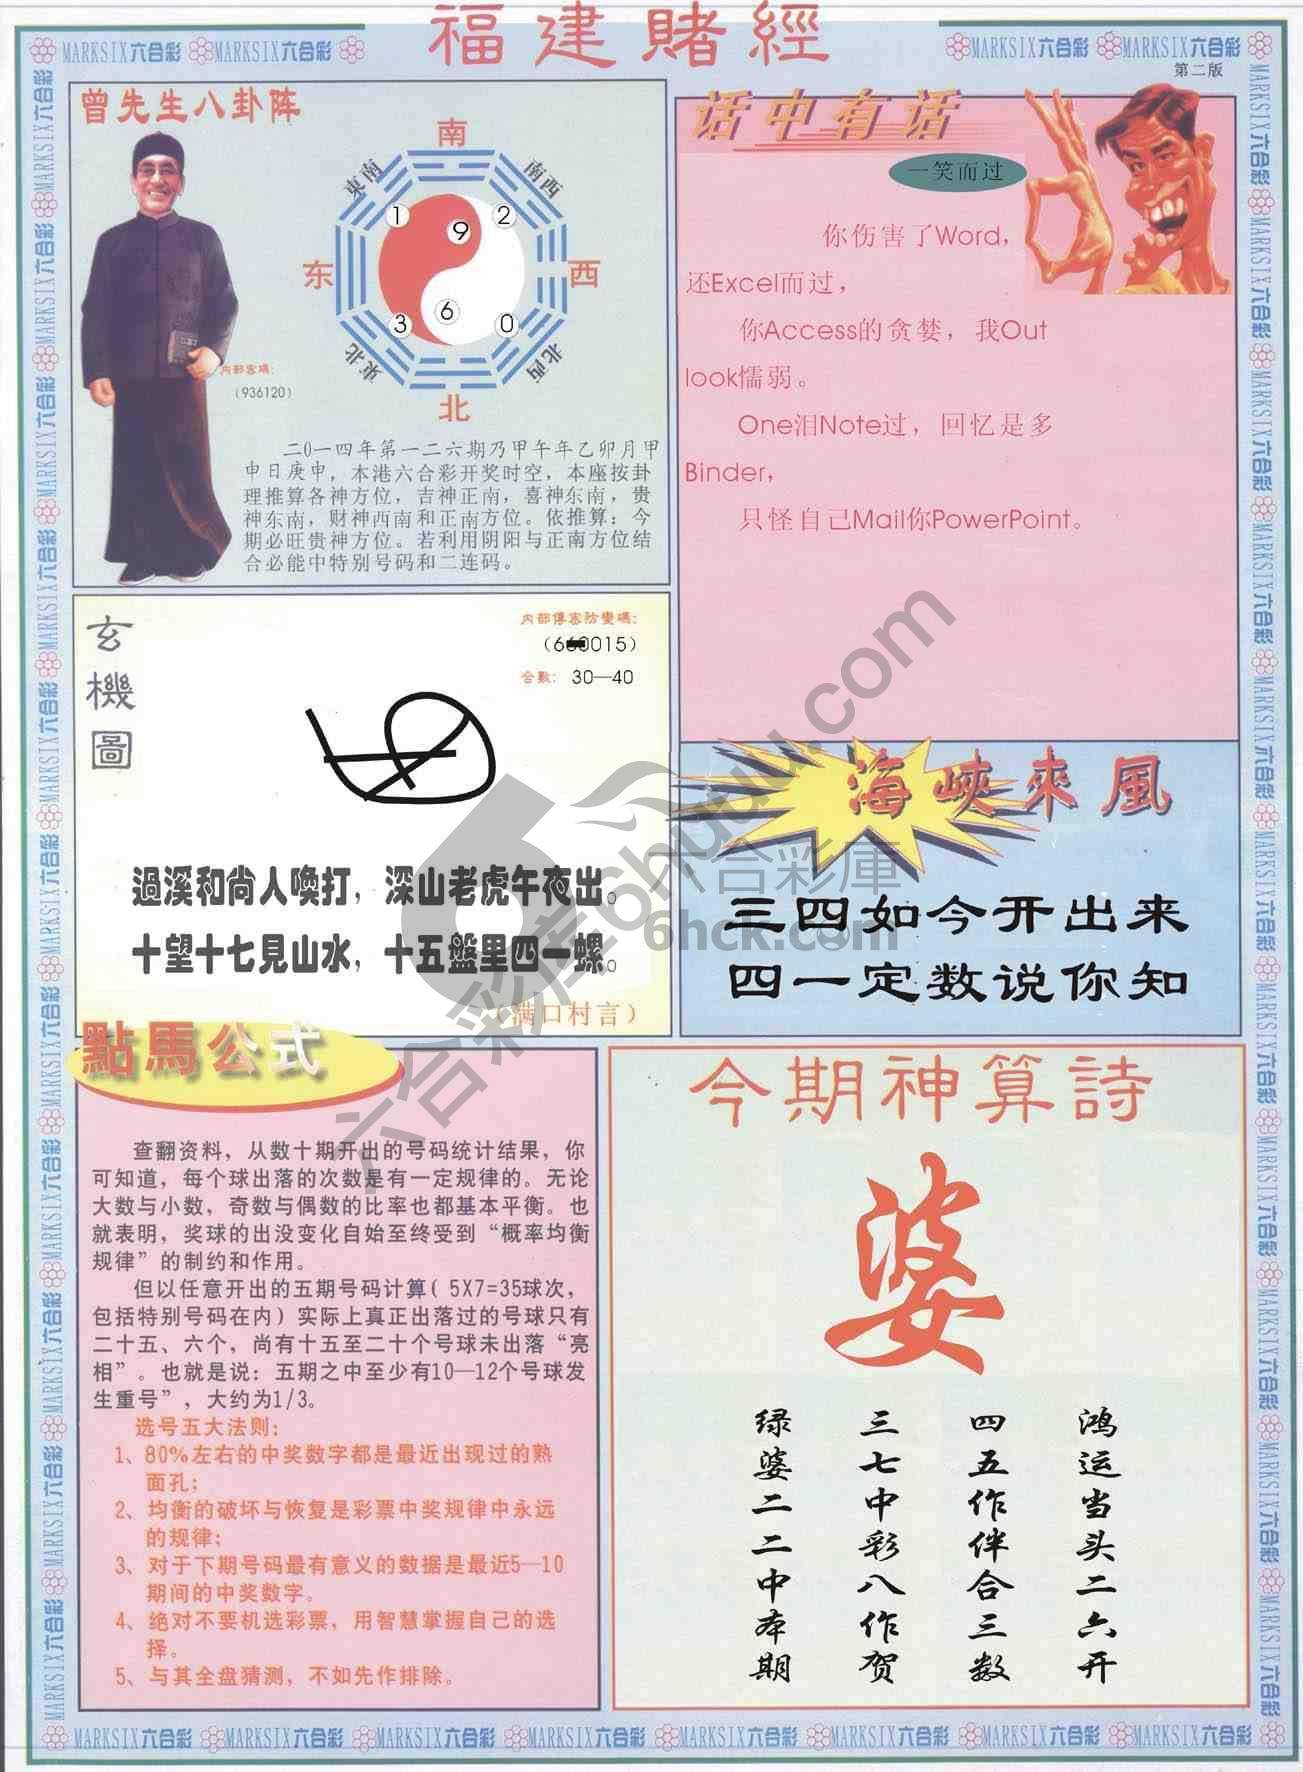 福建賭經
MARKSIX六合彩 MARKSIX六合彩
MARKSIX六合彩 MARKSIX六合彩
第二版
曾先生八卦阵
南
東南
南西
1
9
2
东
西
3
6
0
東北
北西
北
内部密碼：
（936120）
二0一四年第一二六期乃甲午年乙卯月甲
申日庚申，本港六合彩开奖时空，本座按卦
理推算各神方位，吉神正南，喜神东南，贵
神东南，财神西南和正南方位。依推算：今
期必旺贵神方位。若利用阴阳与正南方位结
合必能中特别号码和二连码。
话中有话
一笑而过
你伤害了Word，
还Excel而过，
你Access的贪婪，我Out
look懦弱。
One泪Note过，回忆是多
Binder，
只怪自己Mail你PowerPoint。
玄機圖
内部傳密防變碼：
0015）
合數： 30—40
過溪和尚人喚打，深山老虎午夜出。
十望十七見山水，十五盤里四一螺。
（满口村言）
海峽來風
三四如今开出来
四一定数说你知
點馬公式
查翻资料，从数十期开出的号码统计结果，你
可知道，每个球出落的次数是有一定规律的。无论
大数与小数，奇数与偶数的比率也都基本平衡。也
就表明，奖球的出没变化自始至终受到“概率均衡
规律”的制约和作用。
但以任意开出的五期号码计算（5X7=35球次，
包括特别号码在内）实际上真正出落过的号球只有
二十五、六个，尚有十五至二十个号球未出落“亮
相”。也就是说：五期之中至少有10—12个号球发
生重号”，大约为1/3。
选号五大法则：
1、80%左右的中奖数字都是最近出现过的熟
面孔；
2、均衡的破坏与恢复是彩票中奖规律中永远
的规律；
3、对于下期号码最有意义的数据是最近5—10
期间的中奖数字。
4、绝对不要机选彩票，用智慧掌握自己的选
择。
5、与其全盘猜测，不如先作排除。
今期神算詩
婆
鸿运当头二六开
四五作伴合三数
三七中彩八作贺
绿婆二二中本期
MARKSIX六合彩 MARKSIX六合彩 MARKSIX六合彩 MARKSIX六合彩 MARKSIX六合彩 MARKSIX六合彩 MARKSIX六合彩 MARKSIX六合彩
六合彩庫6huuu.com
六合彩庫
6hck.com